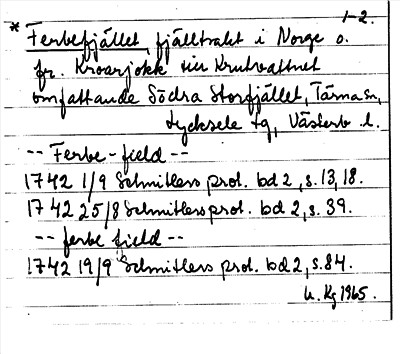 1-2.
* Ferbefjället, fjälltrakt i Norge o.
fr. Kroarjokk till Krutvattnet
omfattande Södra Storfjället, Tärna sn,
Lycksele tg, Västerb. l.
-- Ferbe-field --
1742 1/9 Schnitlers prot. bd 2, s. 13, 18.
1742 25/8 Schnitlers prot. bd 2, s. 39.
-- ferbe field --
1742 19/9 Schnitlers prot. bd 2, s. 84.
Kg 1965.